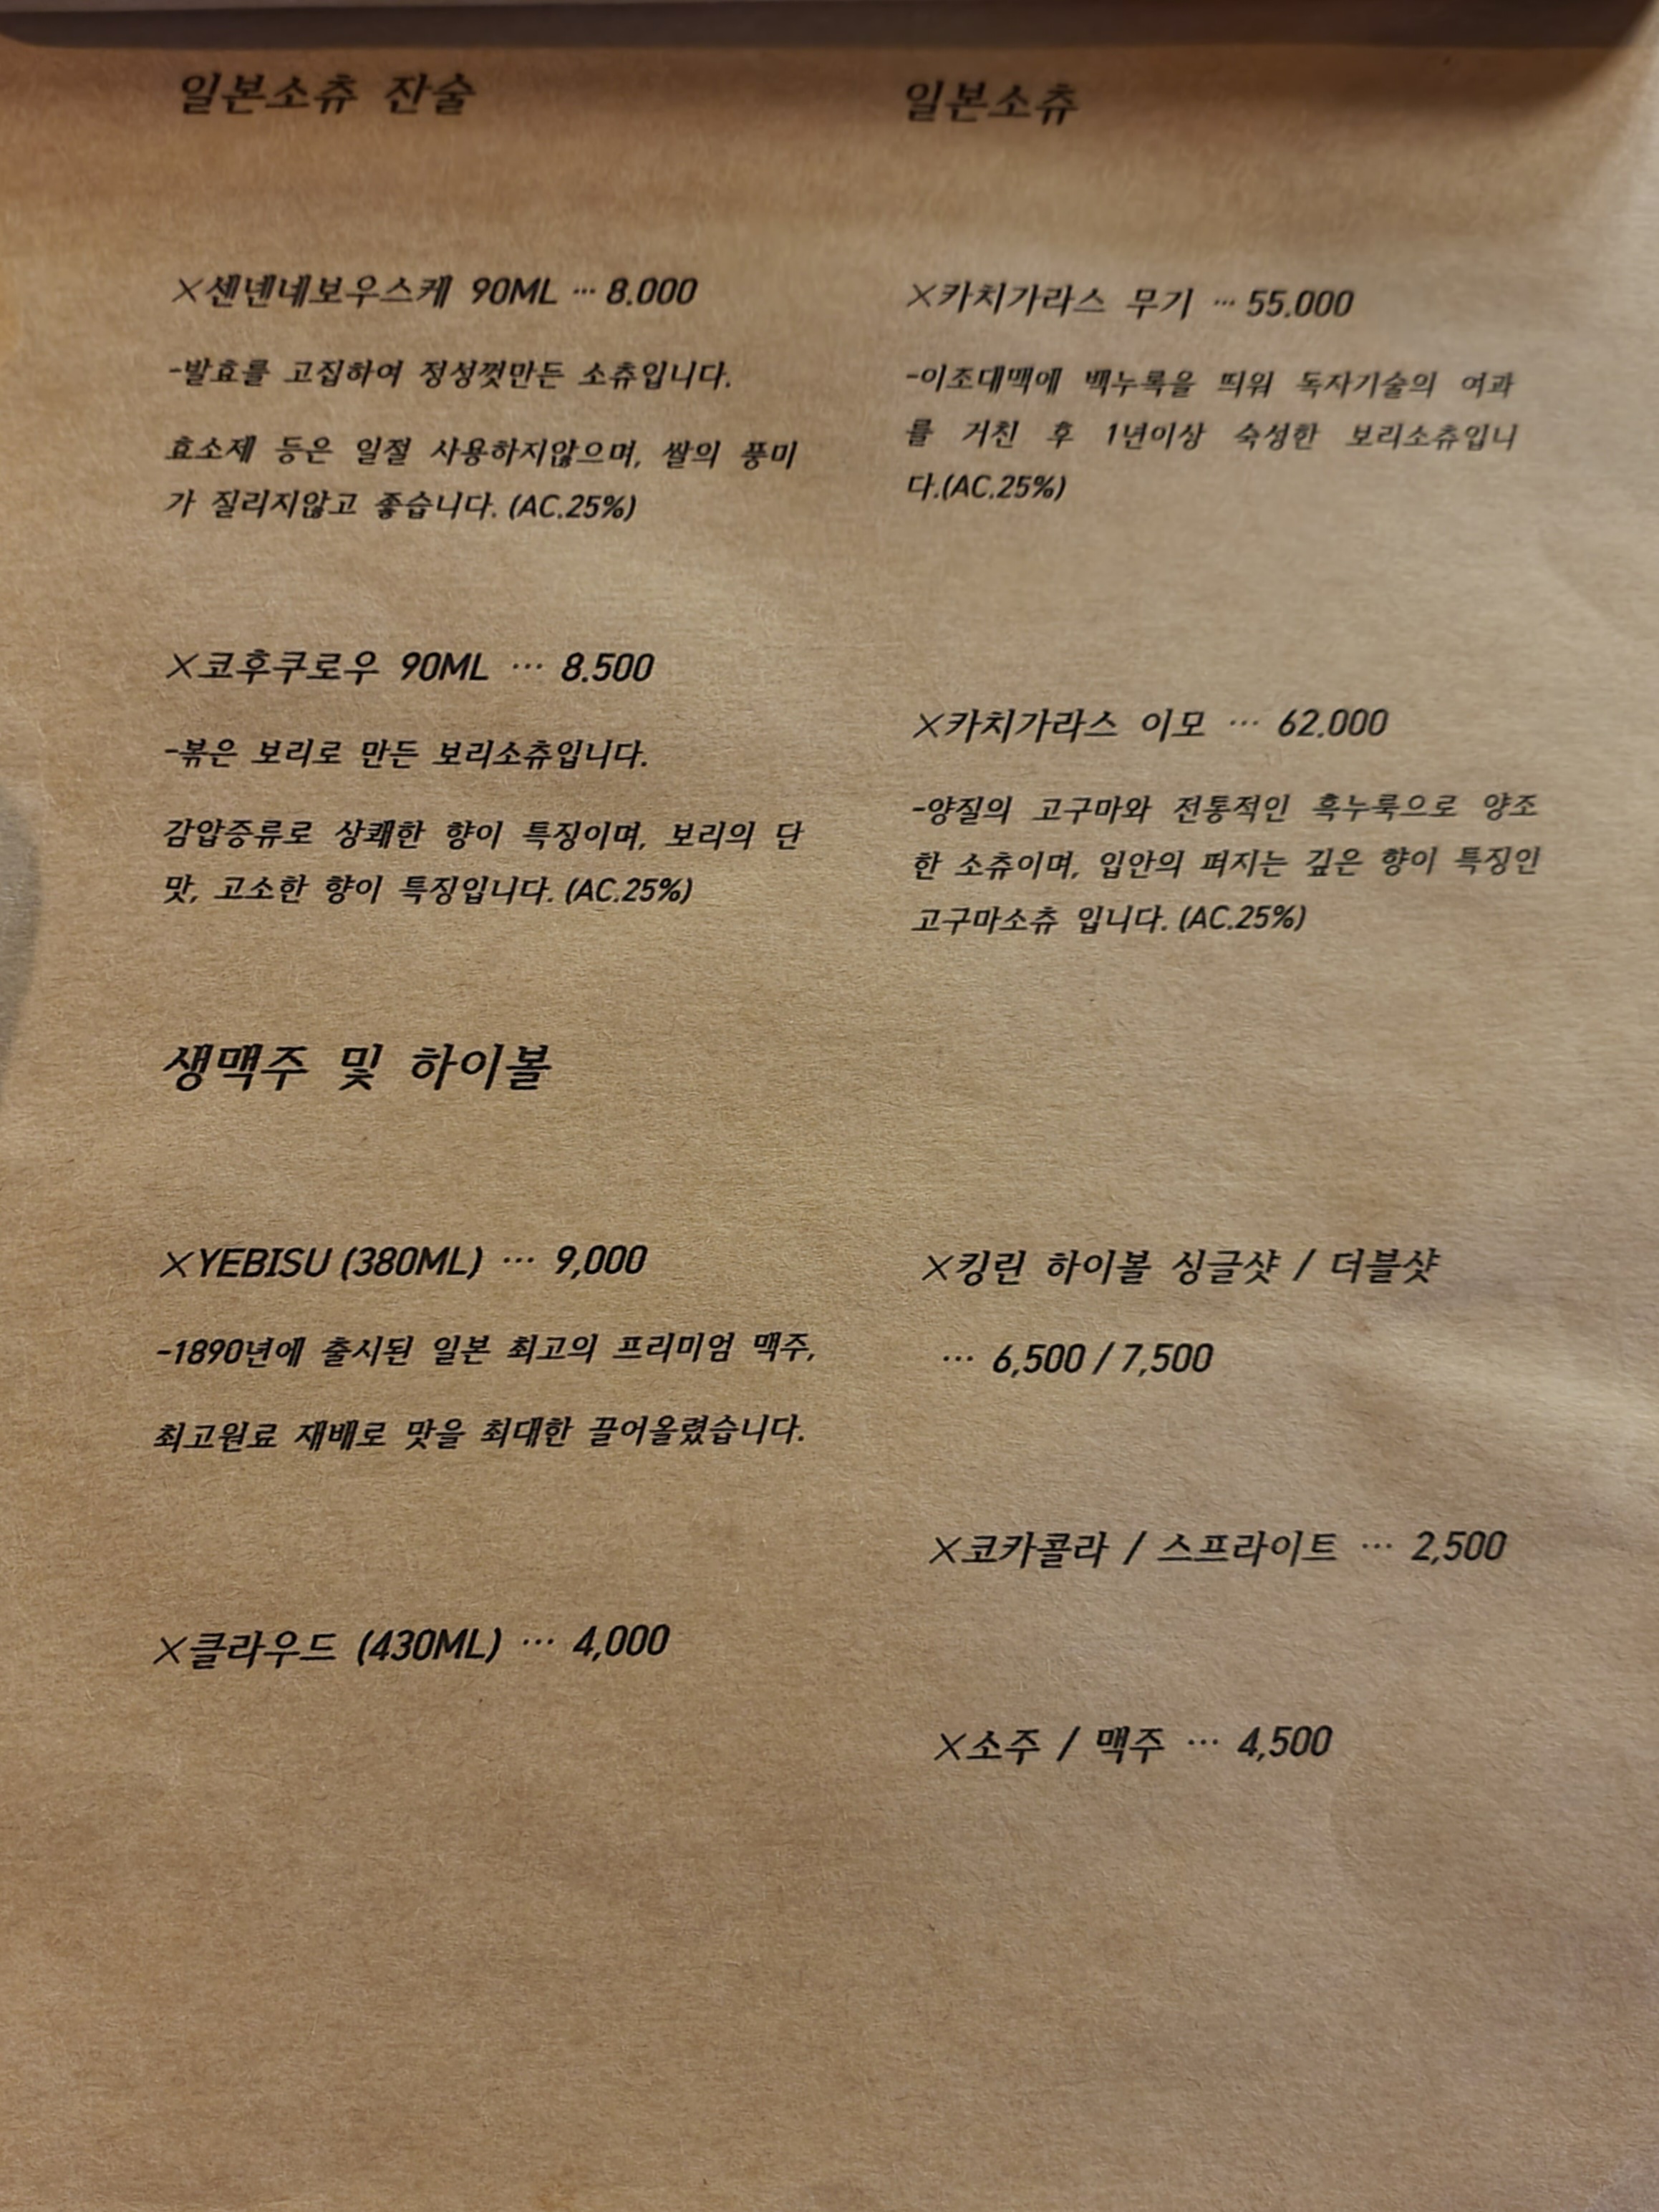 일본소츄 잔술
×센넨네보우스케 90ML ··· 8.000
-발효를 고집하여 정성껏만든 소츄입니다.
효소제 등은 일절 사용하지않으며, 쌀의 풍미
가 질리지않고 좋습니다. (AC.25%)
×코후쿠로우 90ML ··· 8.500
-볶은 보리로 만든 보리소츄입니다.
감압증류로 상쾌한 향이 특징이며, 보리의 단
맛, 고소한 향이 특징입니다. (AC.25%)
일본소츄
×카치가라스 무기 ··· 55.000
-이조대맥에 백누룩을 띄워 독자기술의 여과
를 거친 후 1년이상 숙성한 보리소츄입니
다.(AC.25%)
×카치가라스 이모 ··· 62.000
-양질의 고구마와 전통적인 흑누룩으로 양조
한 소츄이며, 입안의 퍼지는 깊은 향이 특징인
고구마소츄 입니다. (AC.25%)
생맥주 및 하이볼
×YEBISU (380ML) ··· 9,000
-1890년에 출시된 일본 최고의 프리미엄 맥주,
최고원료 재배로 맛을 최대한 끌어올렸습니다.
×클라우드 (430ML) ··· 4,000
×킹린 하이볼 싱글샷 / 더블샷
··· 6,500 / 7,500
×코카콜라 / 스프라이트 ··· 2,500
×소주 / 맥주 ··· 4,500